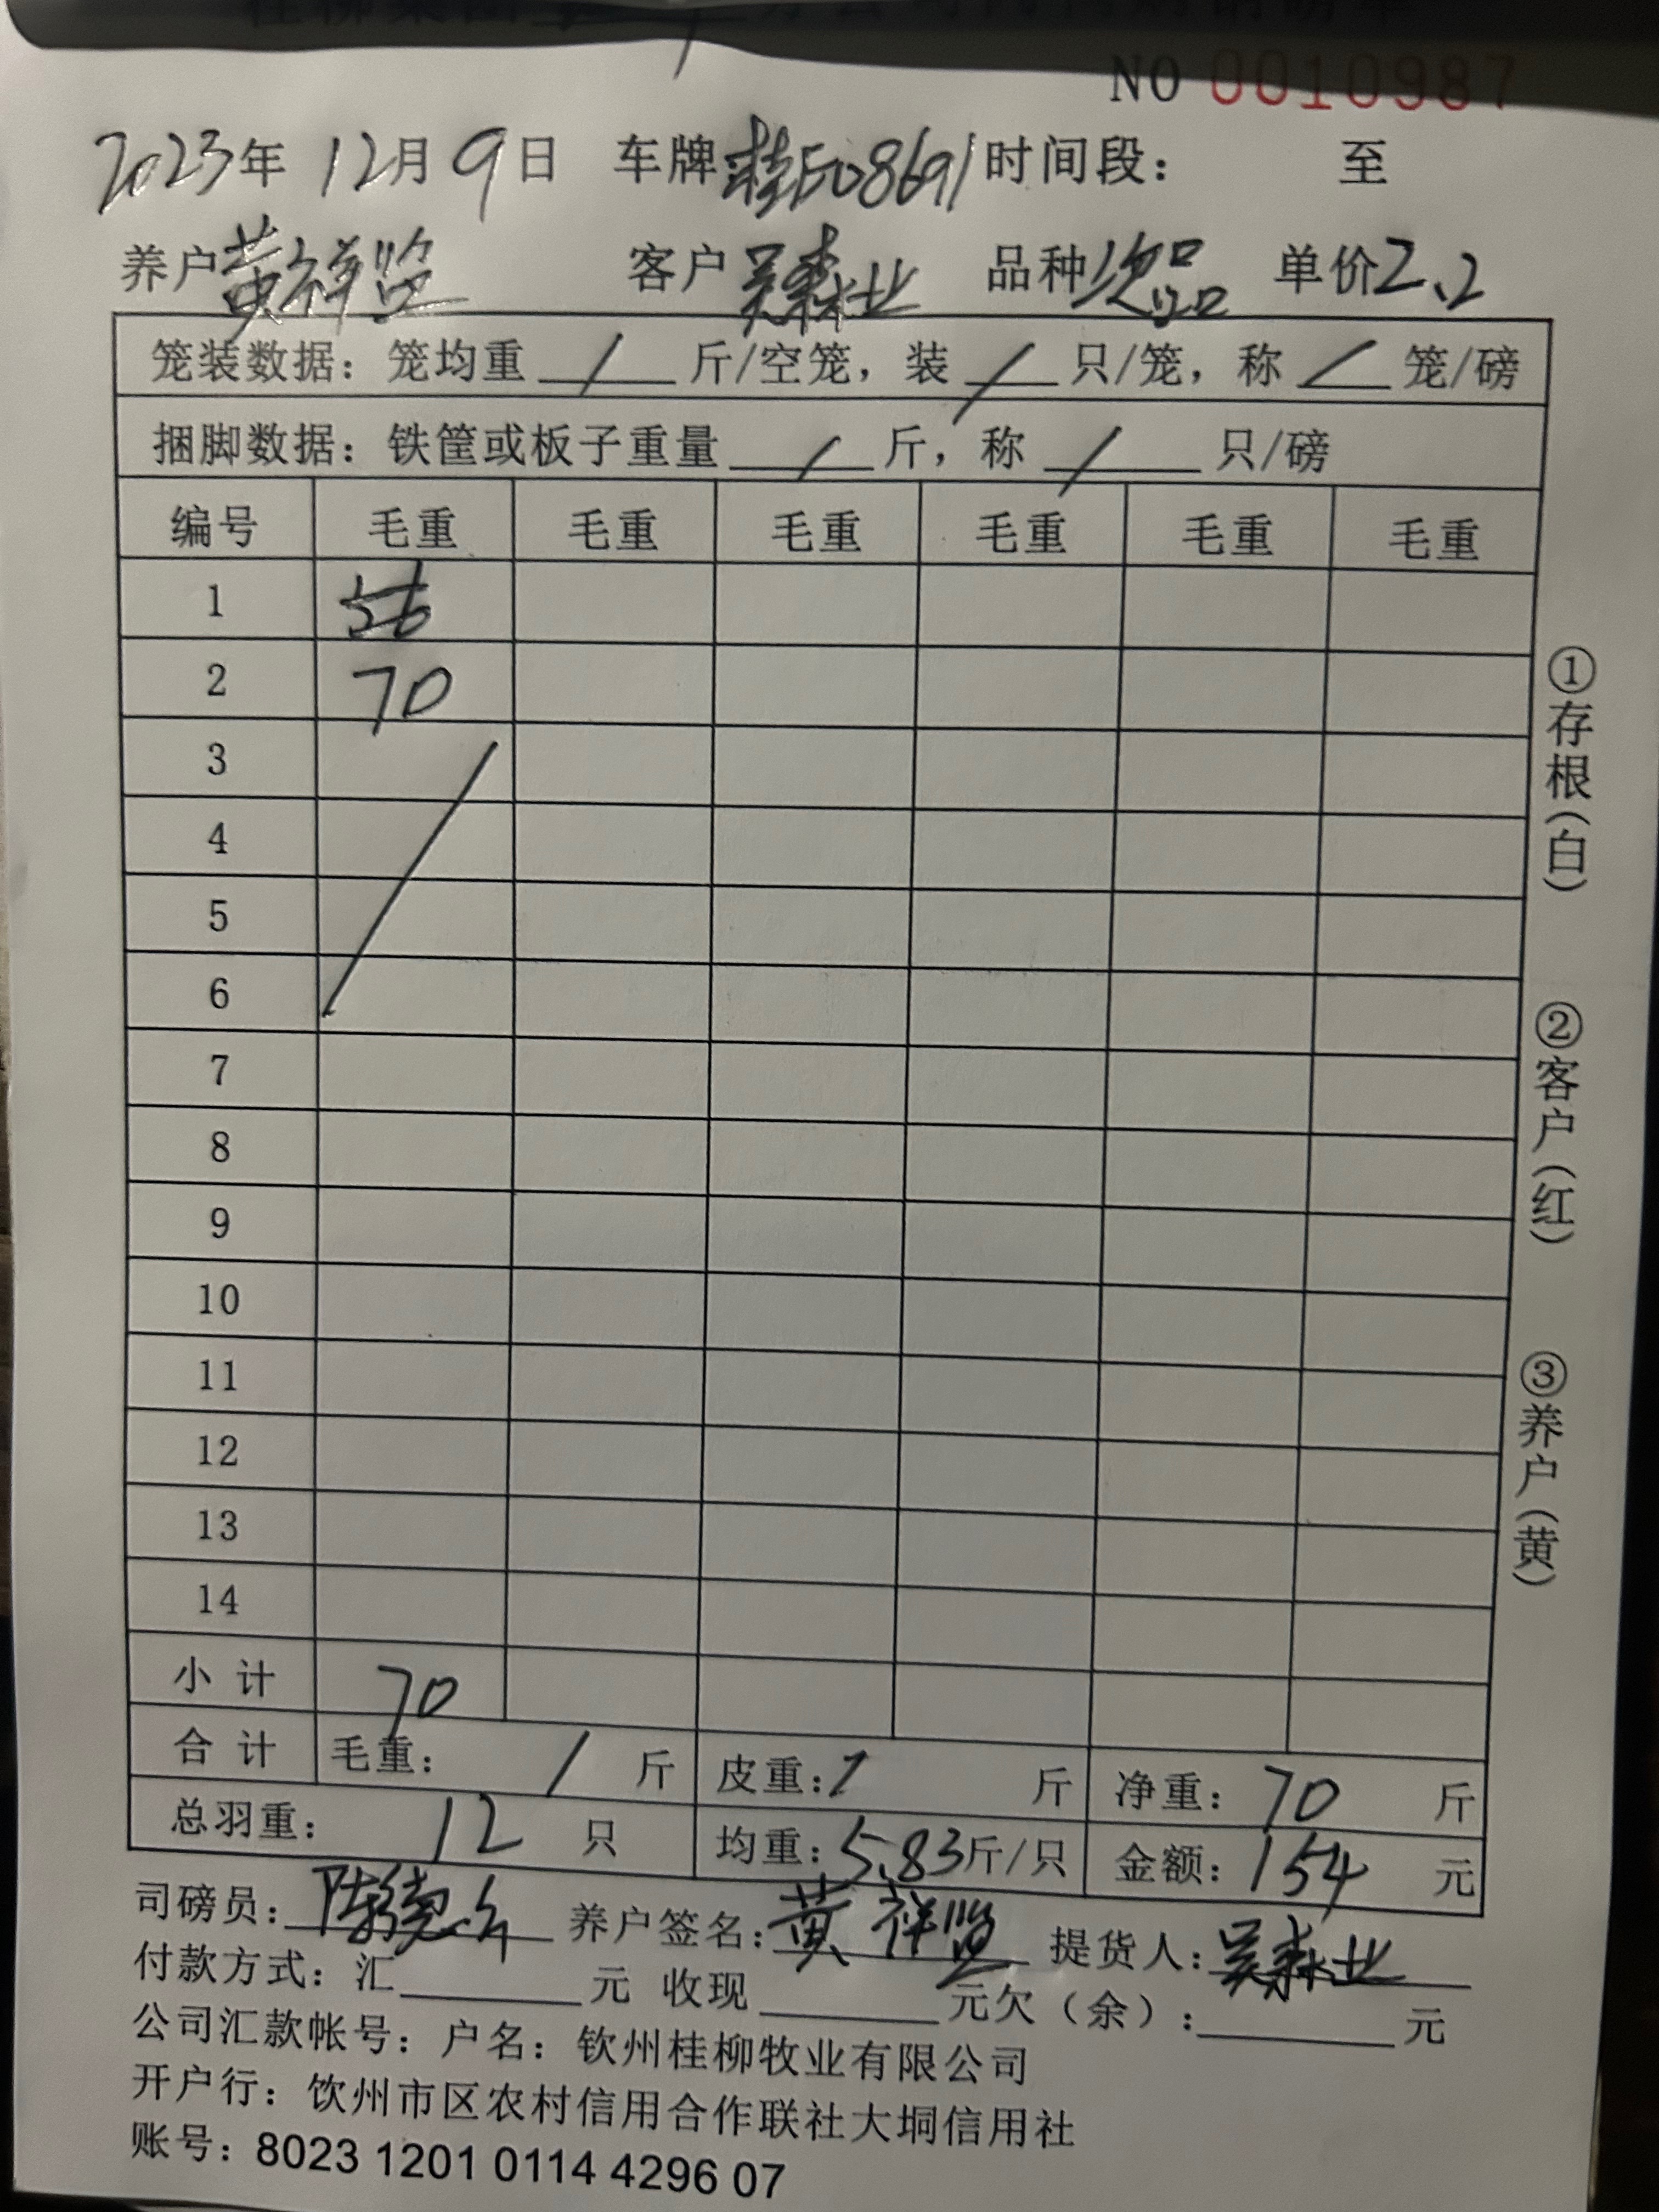 NO 0010987
2023年 12月 9日 车牌桂E08691时间段: 至
养户黄祥贤 客户吴森业 品种次品 单价2.2
笼装数据:笼均重 / 斤/空笼,装 / 只/笼,称 / 笼/磅
捆脚数据:铁筐或板子重量 / 斤,称 / 只/磅
编号 毛重 毛重 毛重 毛重 毛重 毛重
1
2 70
3
4
5
6
7
8
9
10
11
12
13
14
小计 70
合计 毛重: / 斤 皮重:/ 斤 净重:70 斤
总羽重: 12 只 均重:5.83斤/只 金额:154 元
司磅员: 养户签名:黄祥贤 提货人:吴森业
付款方式:汇 元 收现 元欠(余): 元
公司汇款帐号:户名:钦州桂柳牧业有限公司
开户行:钦州市区农村信用合作联社大垌信用社
账号:8023 1201 0114 4296 07
①存根(白)
②客户(红)
③养户(黄)